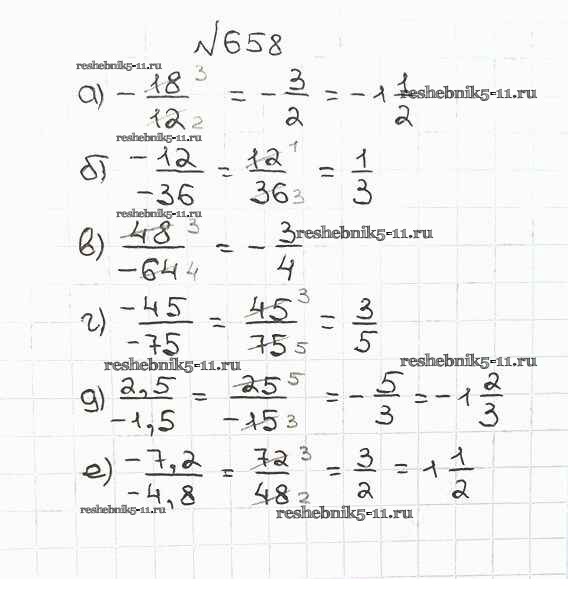 №658
reshebnik5-11.ru
а) - 18/12 3 2 = - 3/2 = -1 1/2
reshebnik5-11.ru
reshebnik5-11.ru
б) -12/-36 = 12/36 1 3 = 1/3
reshebnik5-11.ru
в) 48/-64 3 4 = - 3/4
reshebnik5-11.ru
г) -45/-75 = 45/75 3 5 = 3/5
reshebnik5-11.ru
reshebnik5-11.ru
д) 2,5/-1,5 = 25/-15 5 3 = - 5/3 = -1 2/3
е) -7,2/-4,8 = 72/48 3 2 = 3/2 = 1 1/2
reshebnik5-11.ru
reshebnik5-11.ru